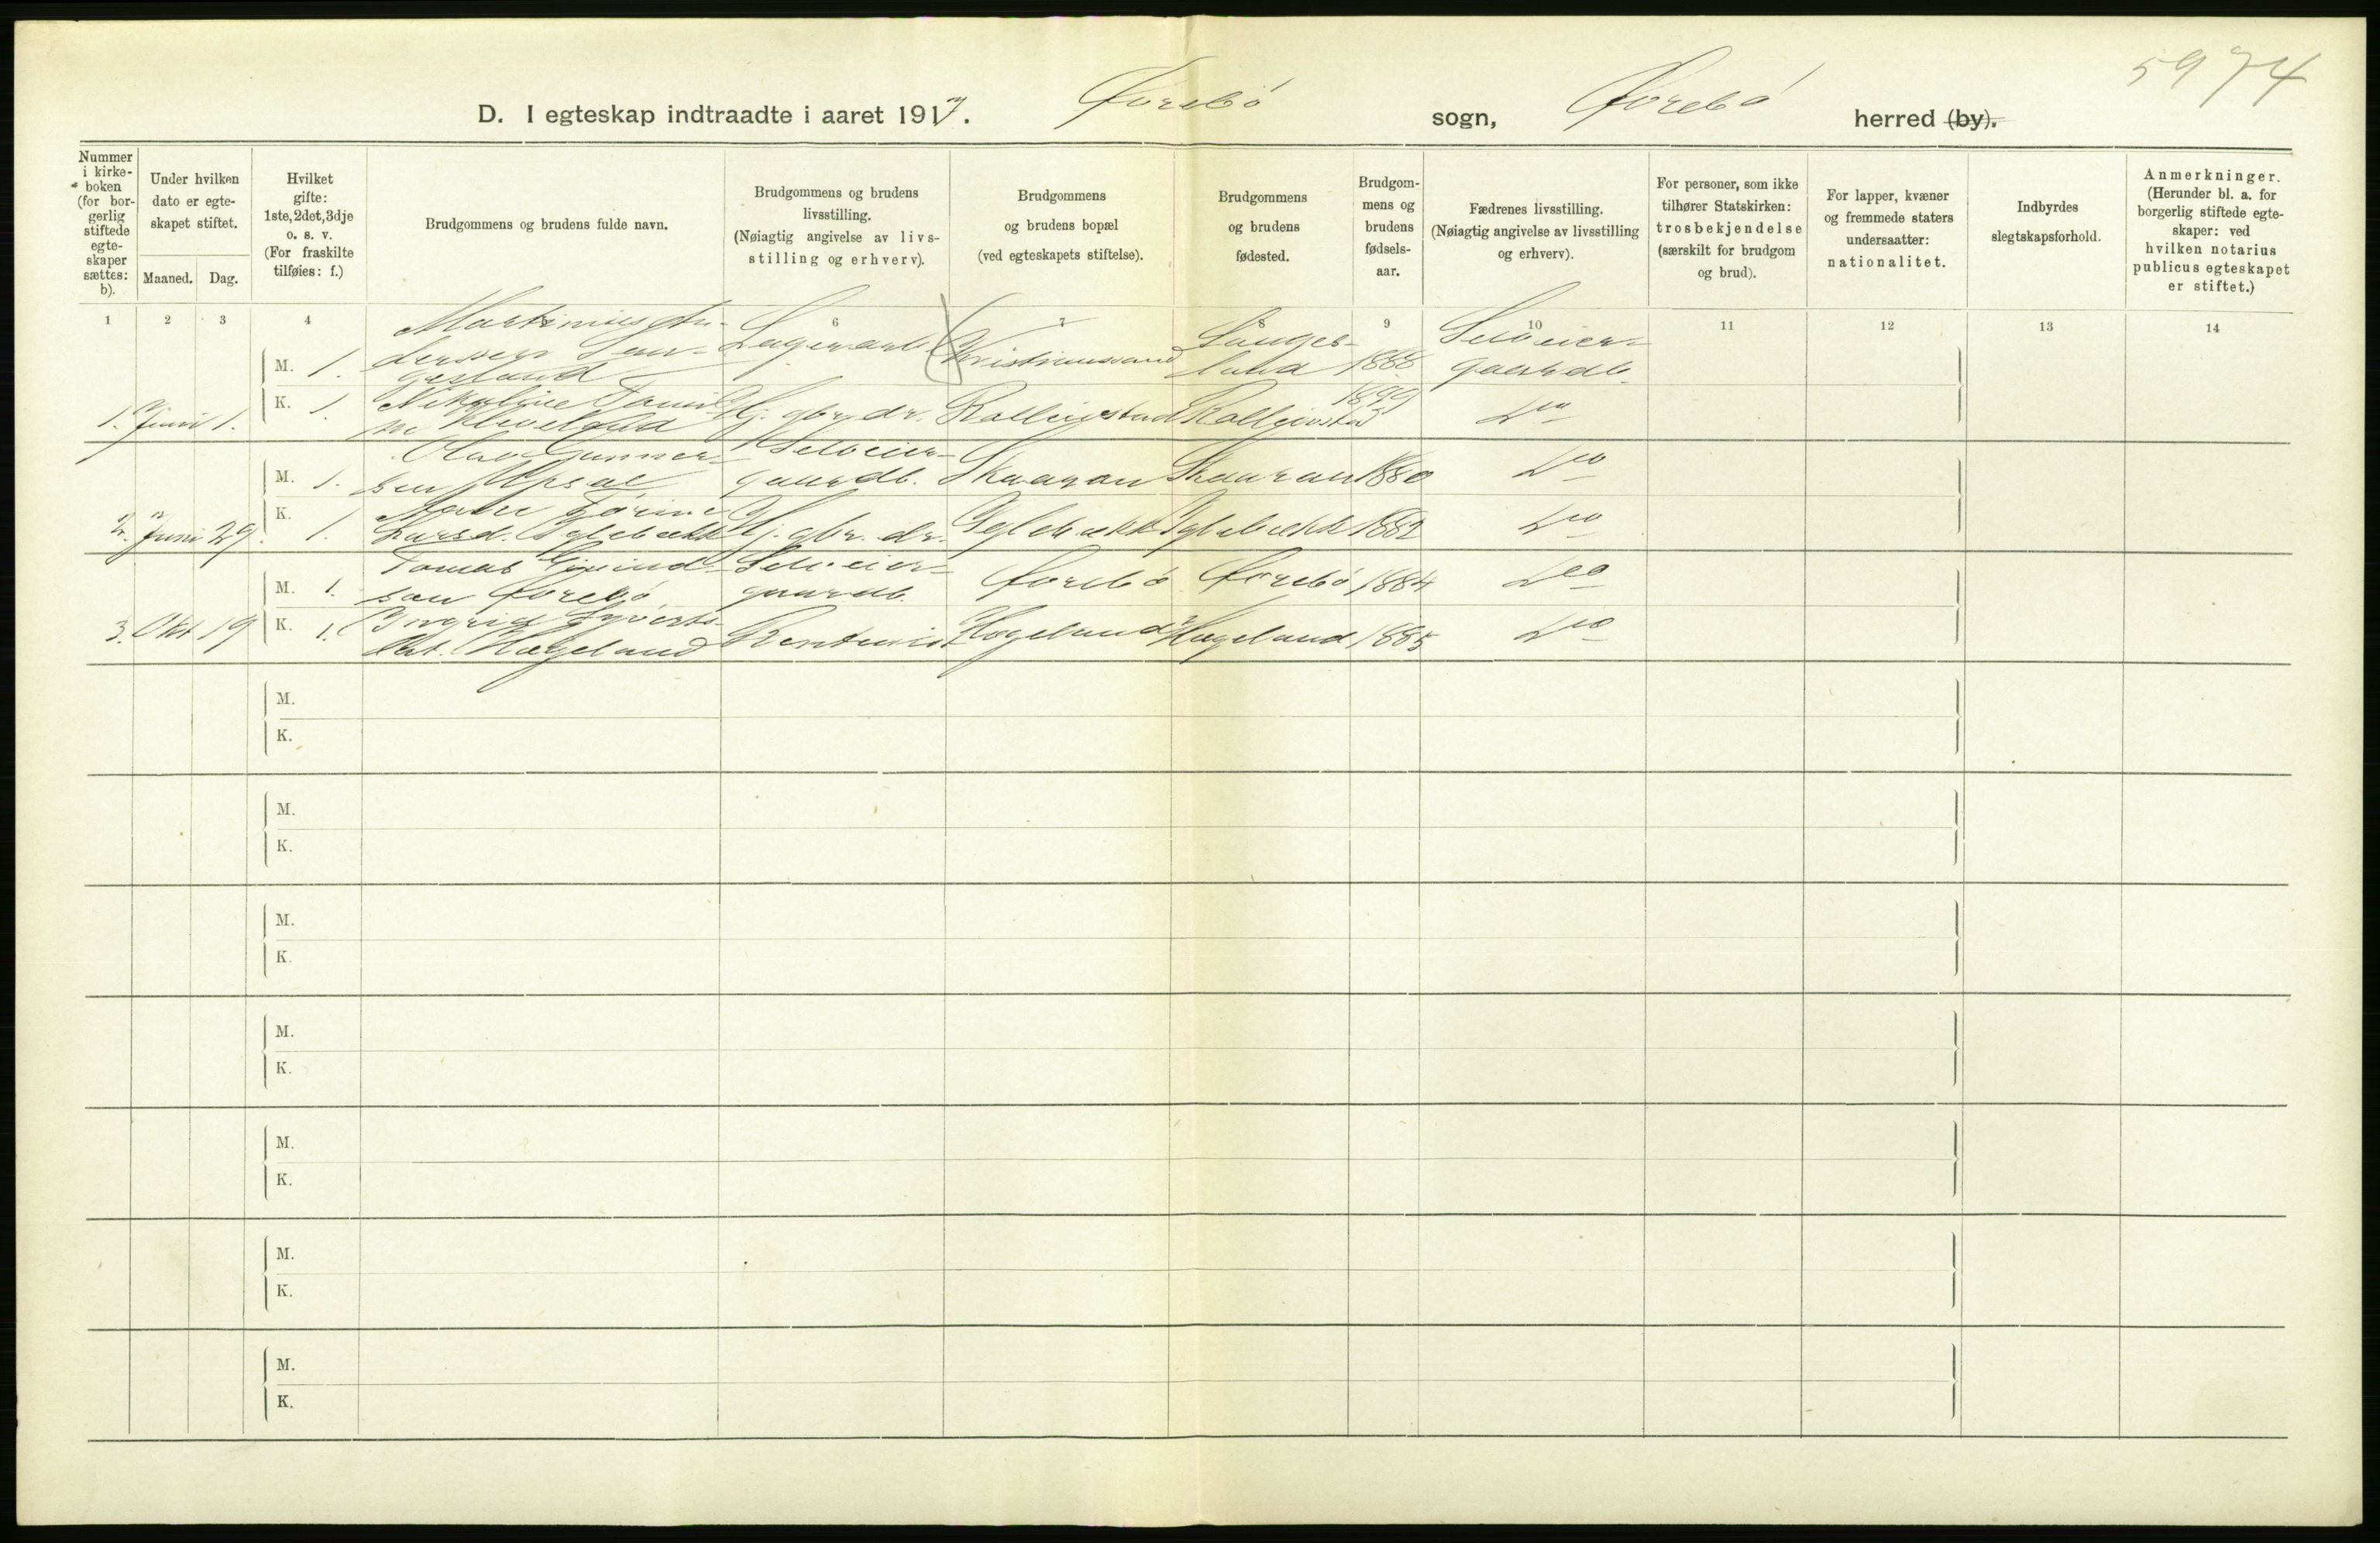 5974
D. I egteskap indtraadte i aaret 1917. Øvrebö sogn, Øvrebö herred (by).
Nummer i kirke-boken (for bor-gerlig stiftede egte-skaper sættes: b).
Under hvilken dato er egte-skapet stiftet.
Maaned. Dag.
Hvilket gifte: 1ste, 2det, 3dje o. s. v. (For fraskilte tilføies: f.)
Brudgommens og brudens fulde navn.
Brudgommens og brudens livsstilling. (Nøiagtig angivelse av livs-stilling og erhverv).
Brudgommens og brudens bopæl (ved egteskapets stiftelse).
Brudgommens og brudens fødested.
Brudgom-mens og brudens fødsels-aar.
Fædrenes livsstilling. (Nøiagtig angivelse av livsstilling og erhverv).
For personer, som ikke tilhører Statskirken: trosbekjendelse (særskilt for brudgom og brud).
For lapper, kvæner og fremmede staters undersaatter: nationalitet.
Indbyrdes slegtskapsforhold.
Anmerkninger. (Herunder bl. a. for borgerlig stiftede egte-skaper: ved hvilken notarius publicus egteskapet er stiftet.)
1 2 3 4 6 7 8 9 10 11 12 13 14
Martinius An- Lauges- Selveier-
M. 1. Kristianssand land 1888 gaardb.
gesland
K. 1. Hj. gbr. dr. 1899 Do
1. Juni 1.
Olav Gunner- Selveier-
M. 1. sen gaardb. Skaaran Skaaran 1880 Do
K.
2. Juni 29. 1. Larsd. Iglebækk Hj. gbr. dr. Iglebækk Iglebækk 1882 Do
Tomas Selveier-
M. 1. son Øvrebö gaardb. Øvrebö Øvrebö 1884 Do
3. Okt 19 K. 1. Ingrid Syverts-
dat. Hægeland Hægeland Hægeland 1885 Do
M.
K.
M.
K.
M.
K.
M.
K.
M.
K.
M.
K.
M.
K.